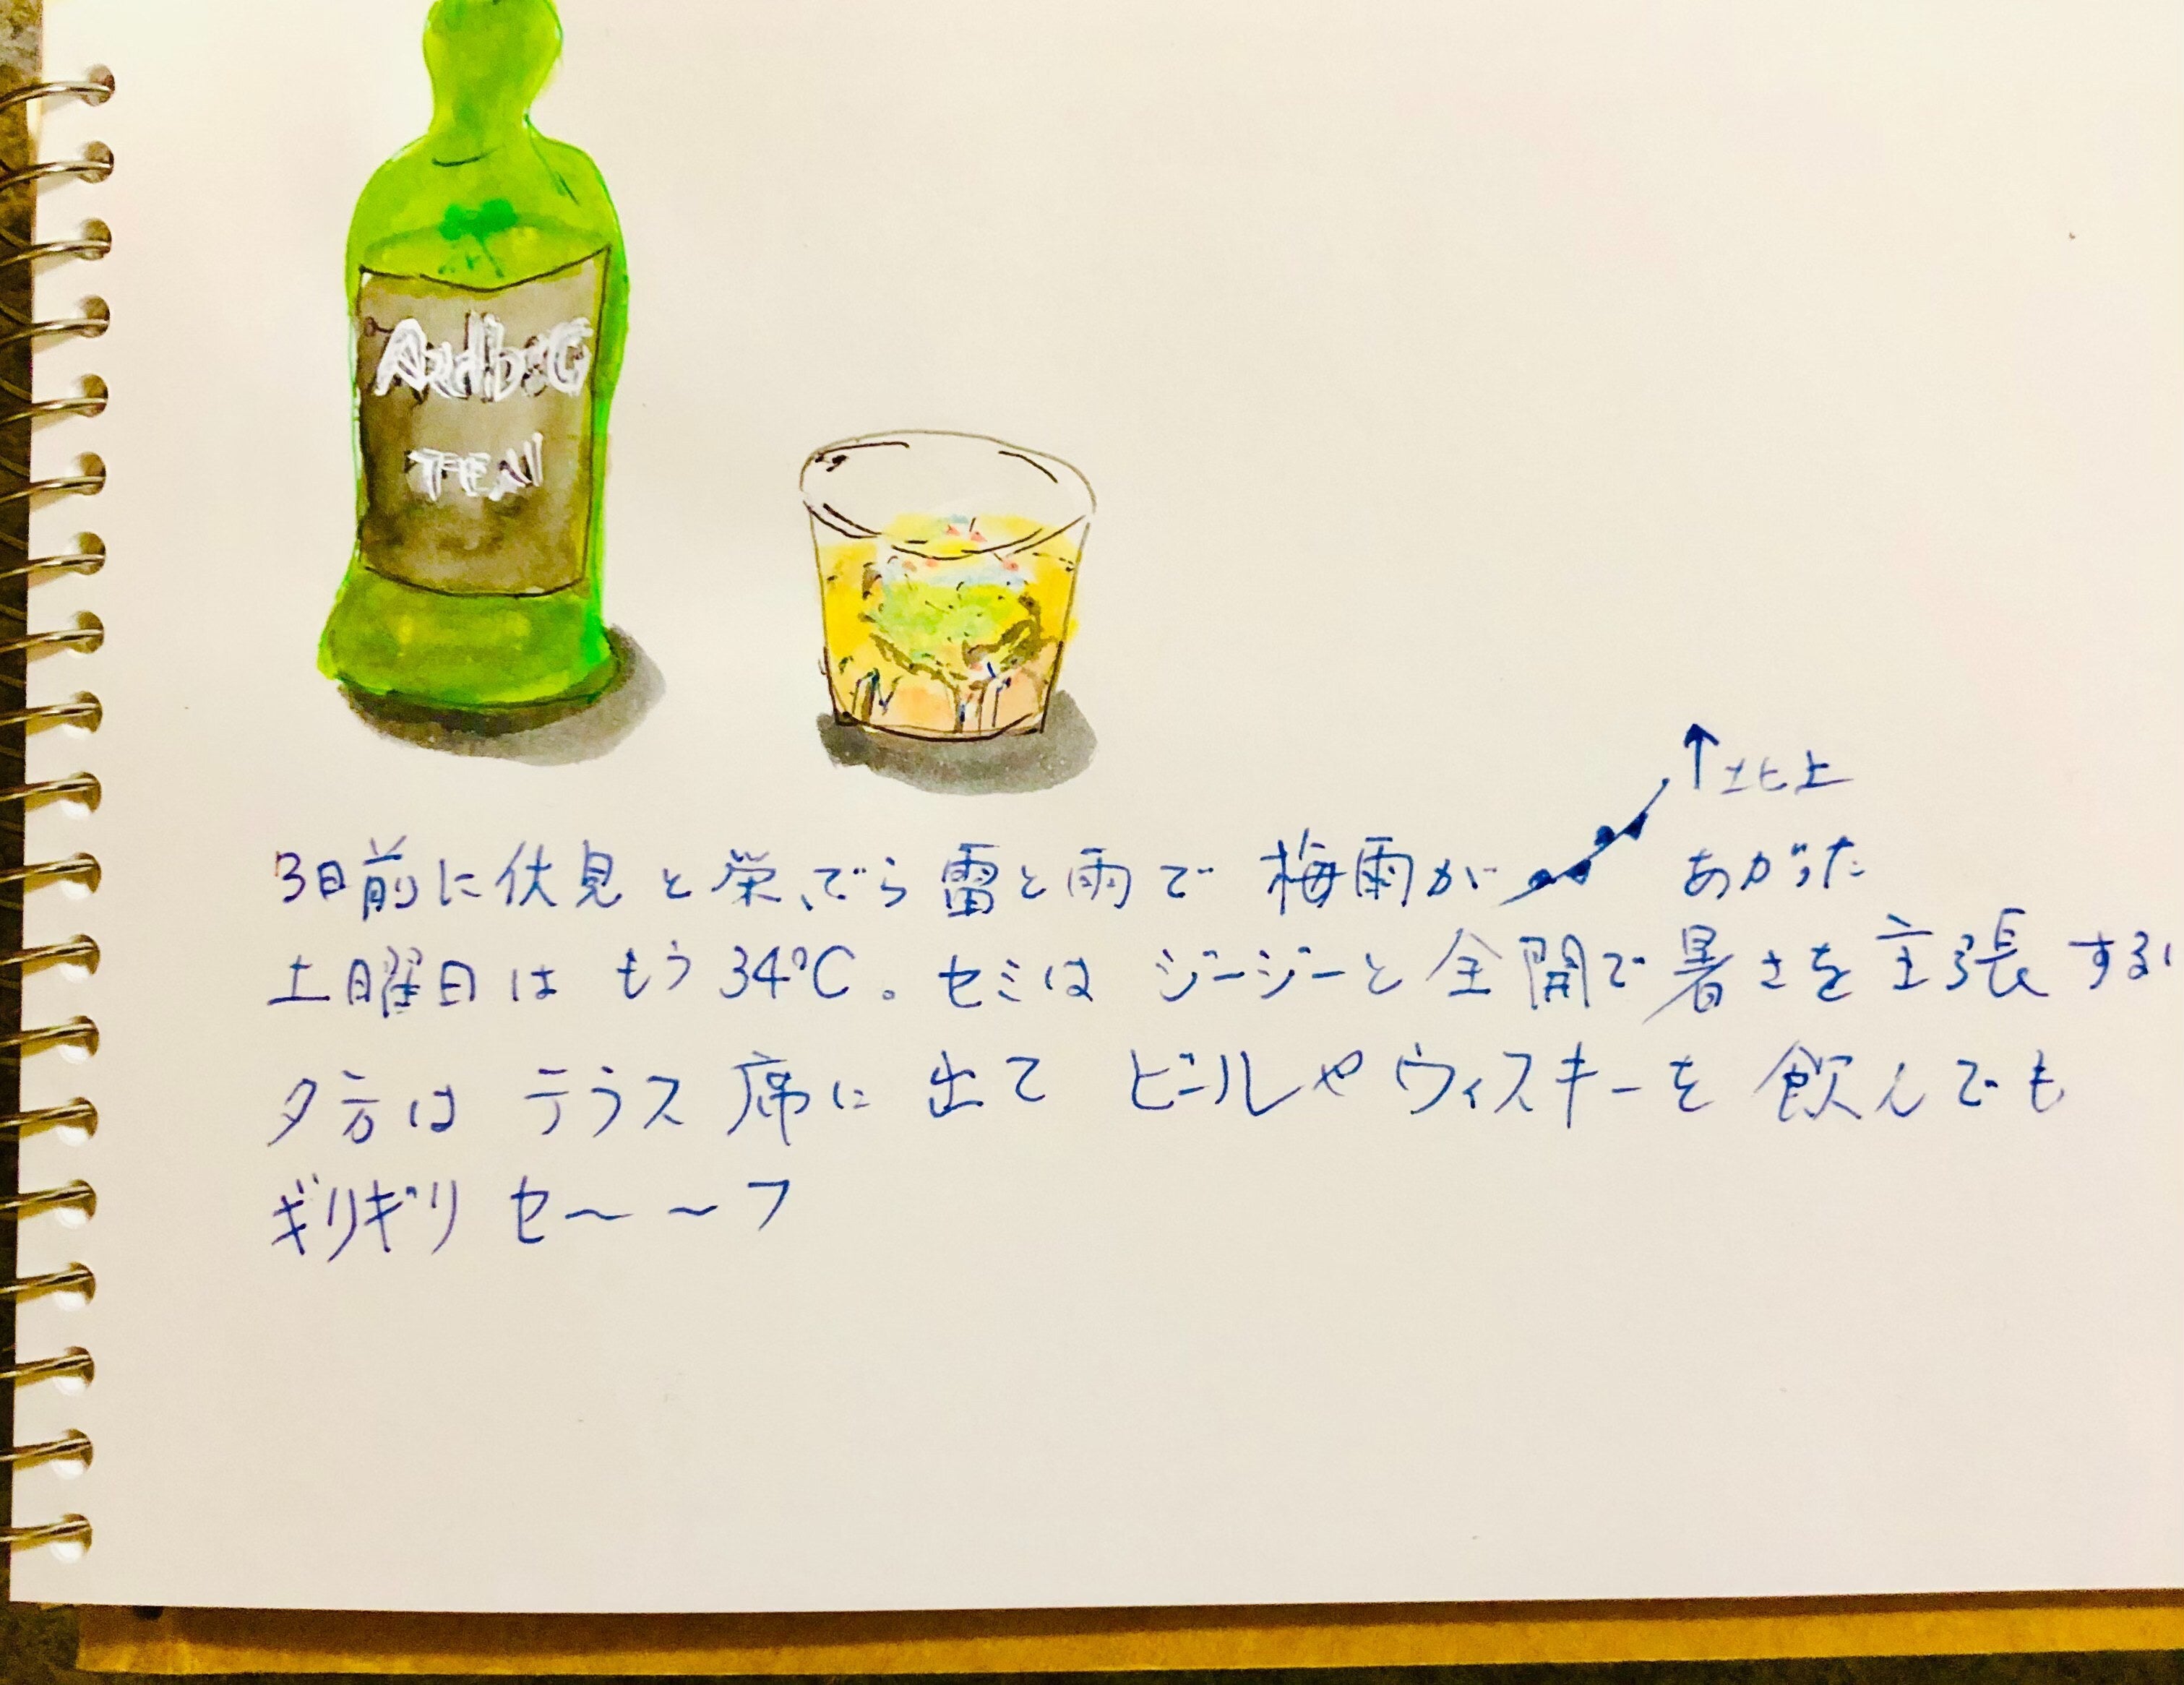 Ardbeg
TEN
↑北上
3日前に伏見と栄でら雷と雨で 梅雨が あがった
土曜日は もう 34℃。セミは ジージーと 全開で 暑さを 主張 する
夕方は テラス席に 出て ビールや ウィスキーを 飲んでも
ギリギリ セ〜〜フ